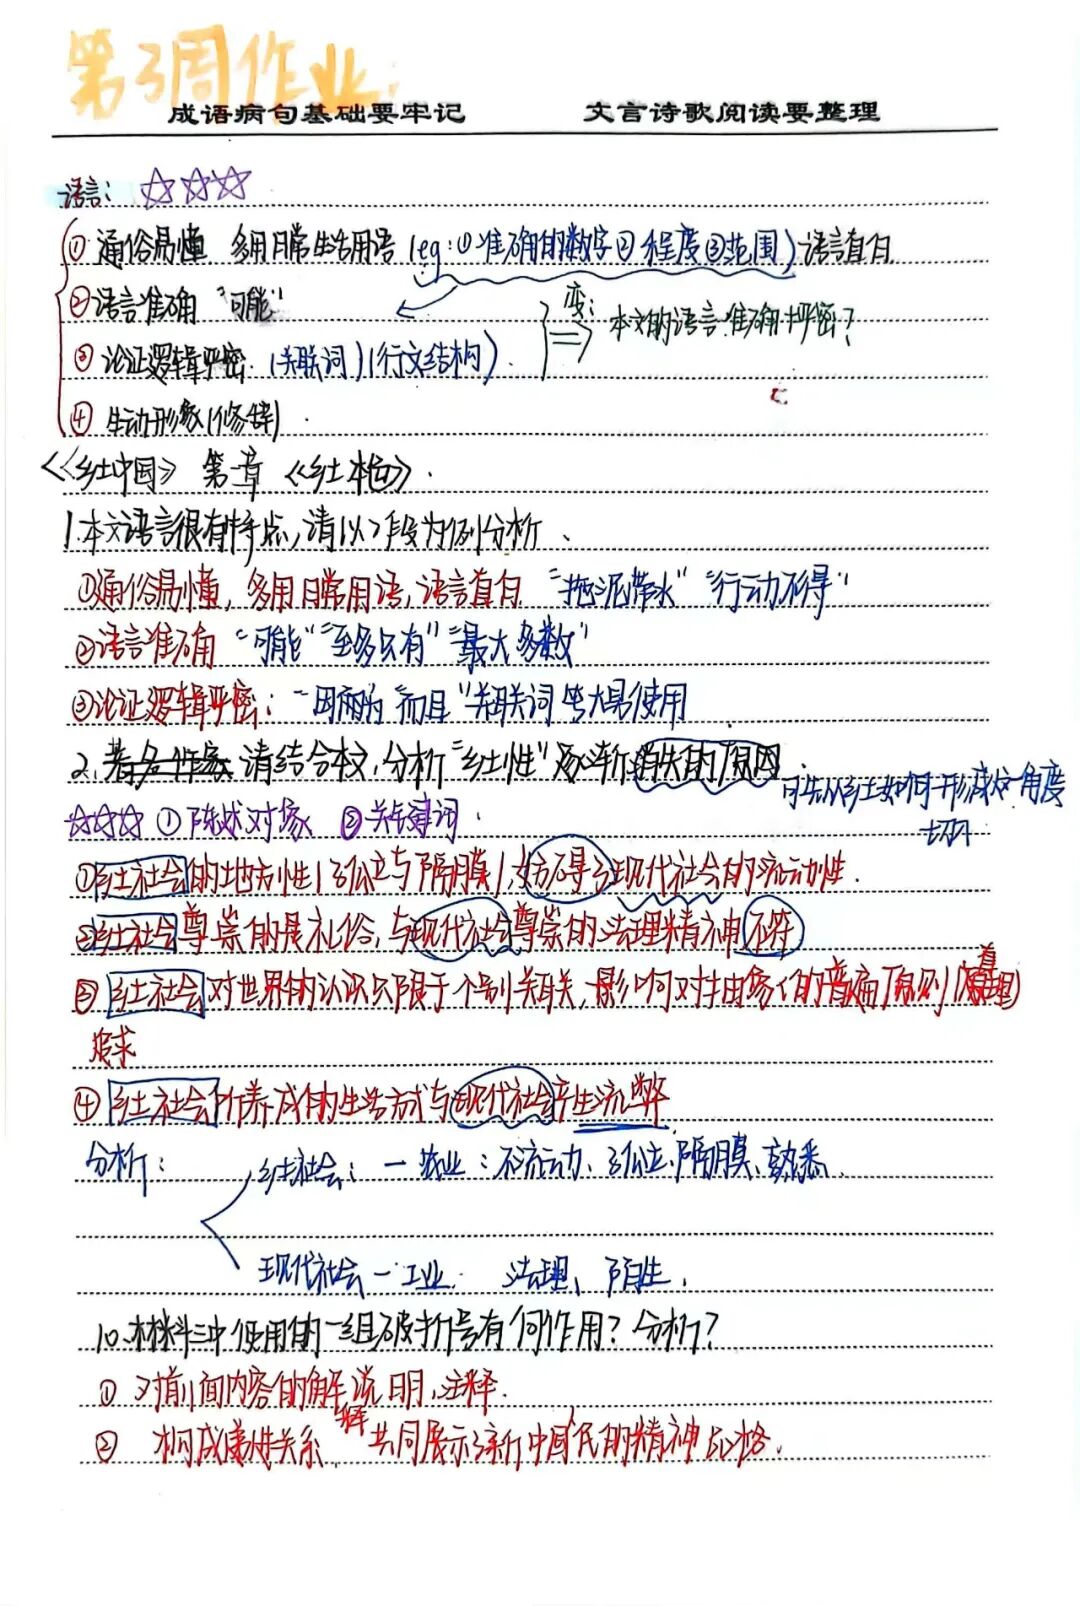 第3周作业
成语病句基础要牢记 文言诗歌阅读要整理
语言: ☆☆☆
① 通俗易懂 多用日常生活用语 (eg:①准确的数字②程度③范围) 语言直白
② 语言准确 "可能"
变: 本文的语言准确严密?
③ 论证逻辑严密 (关联词)(行文结构).
④ 生动形象(修辞).
《乡土中国》 第一章 《乡土本色》.
1.本文语言很有特点,请以7段为例分析、
①通俗易懂, 多用日常用语, 语言直白 "拖泥带水" "行动不得"
②语言准确 "可能" "至多只有" "最大多数"
③论证逻辑严密: "因而为 而且" 关联词 使用
2. 请结合本文,分析"乡土性"逐渐消失的原因.
可先从乡土如何形成这一角度
切
☆☆☆ ①陈述对象 ②关键词.
①乡土社会的地方性(孤立与隔膜), 妨碍了现代社会的流动性.
②乡土社会尊崇的是礼俗, 与现代社会尊崇的法理精神不符
③ 乡土社会对世界的认识只限于个别关联, 影响对抽象的普遍原则(真理)
追求
④ 乡土社会所养成的生活方式与现代社会产生流弊
分析:
乡土社会: 一 农业: 不流动、孤立、隔膜、熟悉.
现代社会 一 工业. 法理、陌生.
10.材料三中使用的一组破折号有何作用? 分析?
① 对前面内容的解说明,注释.
② 构成 关系, 共同展示 中国人民的精神品格.